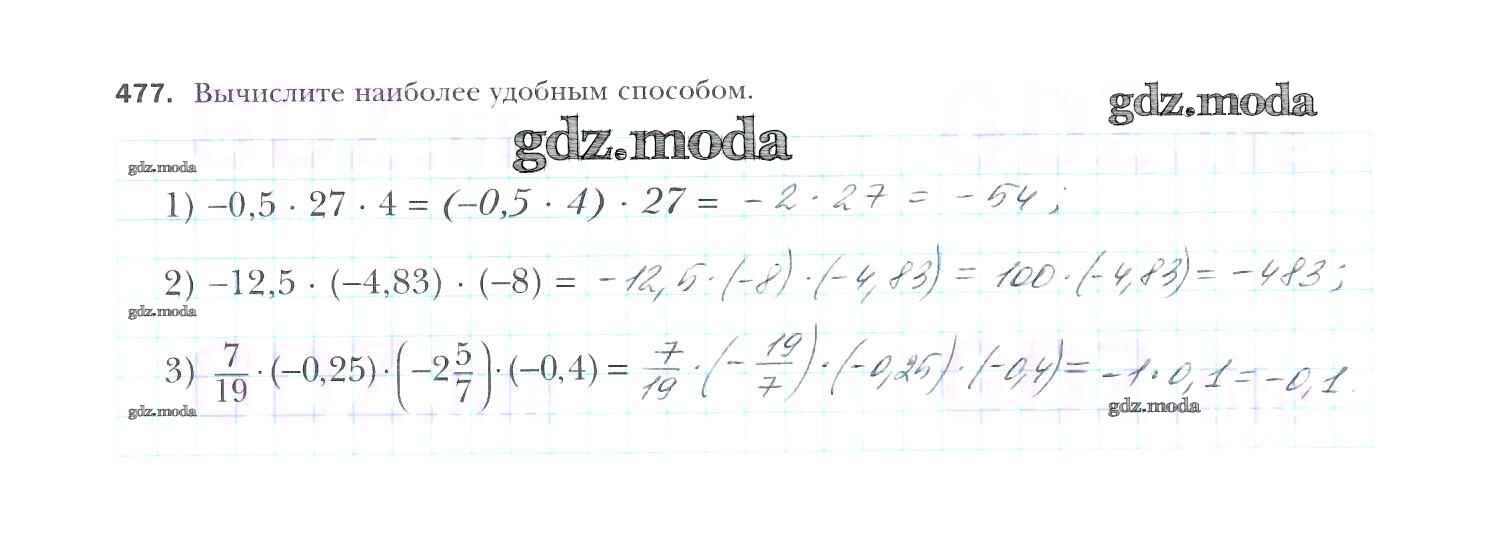 477. Вычислите наиболее удобным способом.
gdz.moda
gdz.moda
gdz.moda
1) −0,5 · 27 · 4 = (−0,5 · 4) · 27 = −2 · 27 = −54;
2) −12,5 · (−4,83) · (−8) = −12,5 · (−8) · (−4,83) = 100 · (−4,83) = −483;
gdz.moda
3) 7/19 · (−0,25) · (−2 5/7) · (−0,4) = 7/19 · (−19/7) · (−0,25) · (−0,4) = −1 · 0,1 = −0,1.
gdz.moda
gdz.moda